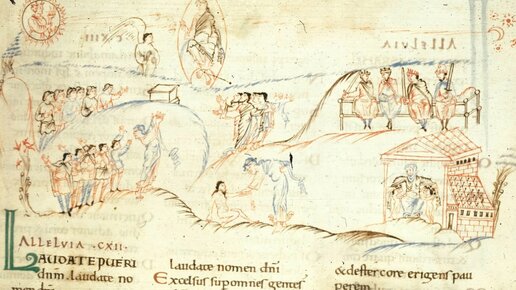 ALLELVIA
ALLELVIA .CXII.
LAUDATE PUERI
dnm. laudate no
laudate nomen dni
Excelsus sup omnes gentes
& de stercore erigens pau
perem